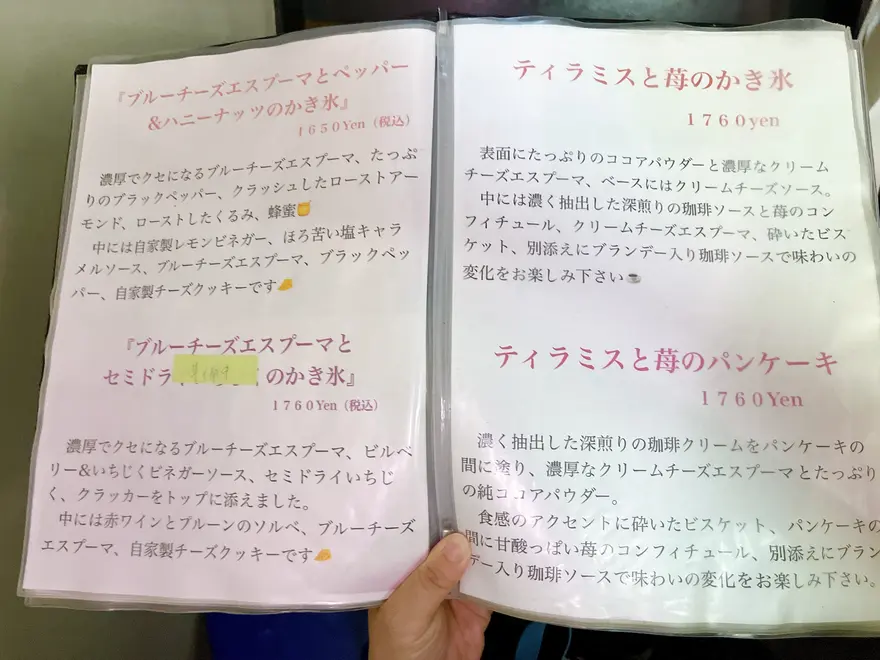 『ブルーチーズエスプーマとペッパー
&ハニーナッツのかき氷』
1650Yen（税込）
濃厚でクセになるブルーチーズエスプーマ、たっぷ
りのブラックペッパー、クラッシュしたローストアー
モンド、ローストしたくるみ、蜂蜜🍯
中には自家製レモンビネガー、ほろ苦い塩キャラ
メルソース、ブルーチーズエスプーマ、ブラックペッ
パー、自家製チーズクッキーです🧀
『ブルーチーズエスプーマと
セミドラ のかき氷』
1760Yen（税込）
濃厚でクセになるブルーチーズエスプーマ、ビルベ
リー&いちじくビネガーソース、セミドライいちじ
く、クラッカーをトップに添えました。
中には赤ワインとプルーンのソルベ、ブルーチーズ
エスプーマ、自家製チーズクッキーです🧀
ティラミスと苺のかき氷
1760yen
表面にたっぷりのココアパウダーと濃厚なクリーム
チーズエスプーマ、ベースにはクリームチーズソース。
中には濃く抽出した深煎りの珈琲ソースと苺のコン
フィチュール、クリームチーズエスプーマ、砕いたビス
ケット、別添えにブランデー入り珈琲ソースで味わいの
変化をお楽しみ下さい☕
ティラミスと苺のパンケーキ
1760Yen
濃く抽出した深煎りの珈琲クリームをパンケーキの
間に塗り、濃厚なクリームチーズエスプーマとたっぷり
の純ココアパウダー。
食感のアクセントに砕いたビスケット、パンケーキの
間に甘酸っぱい苺のコンフィチュール、別添えにブラン
デー入り珈琲ソースで味わいの変化をお楽しみ下さい。